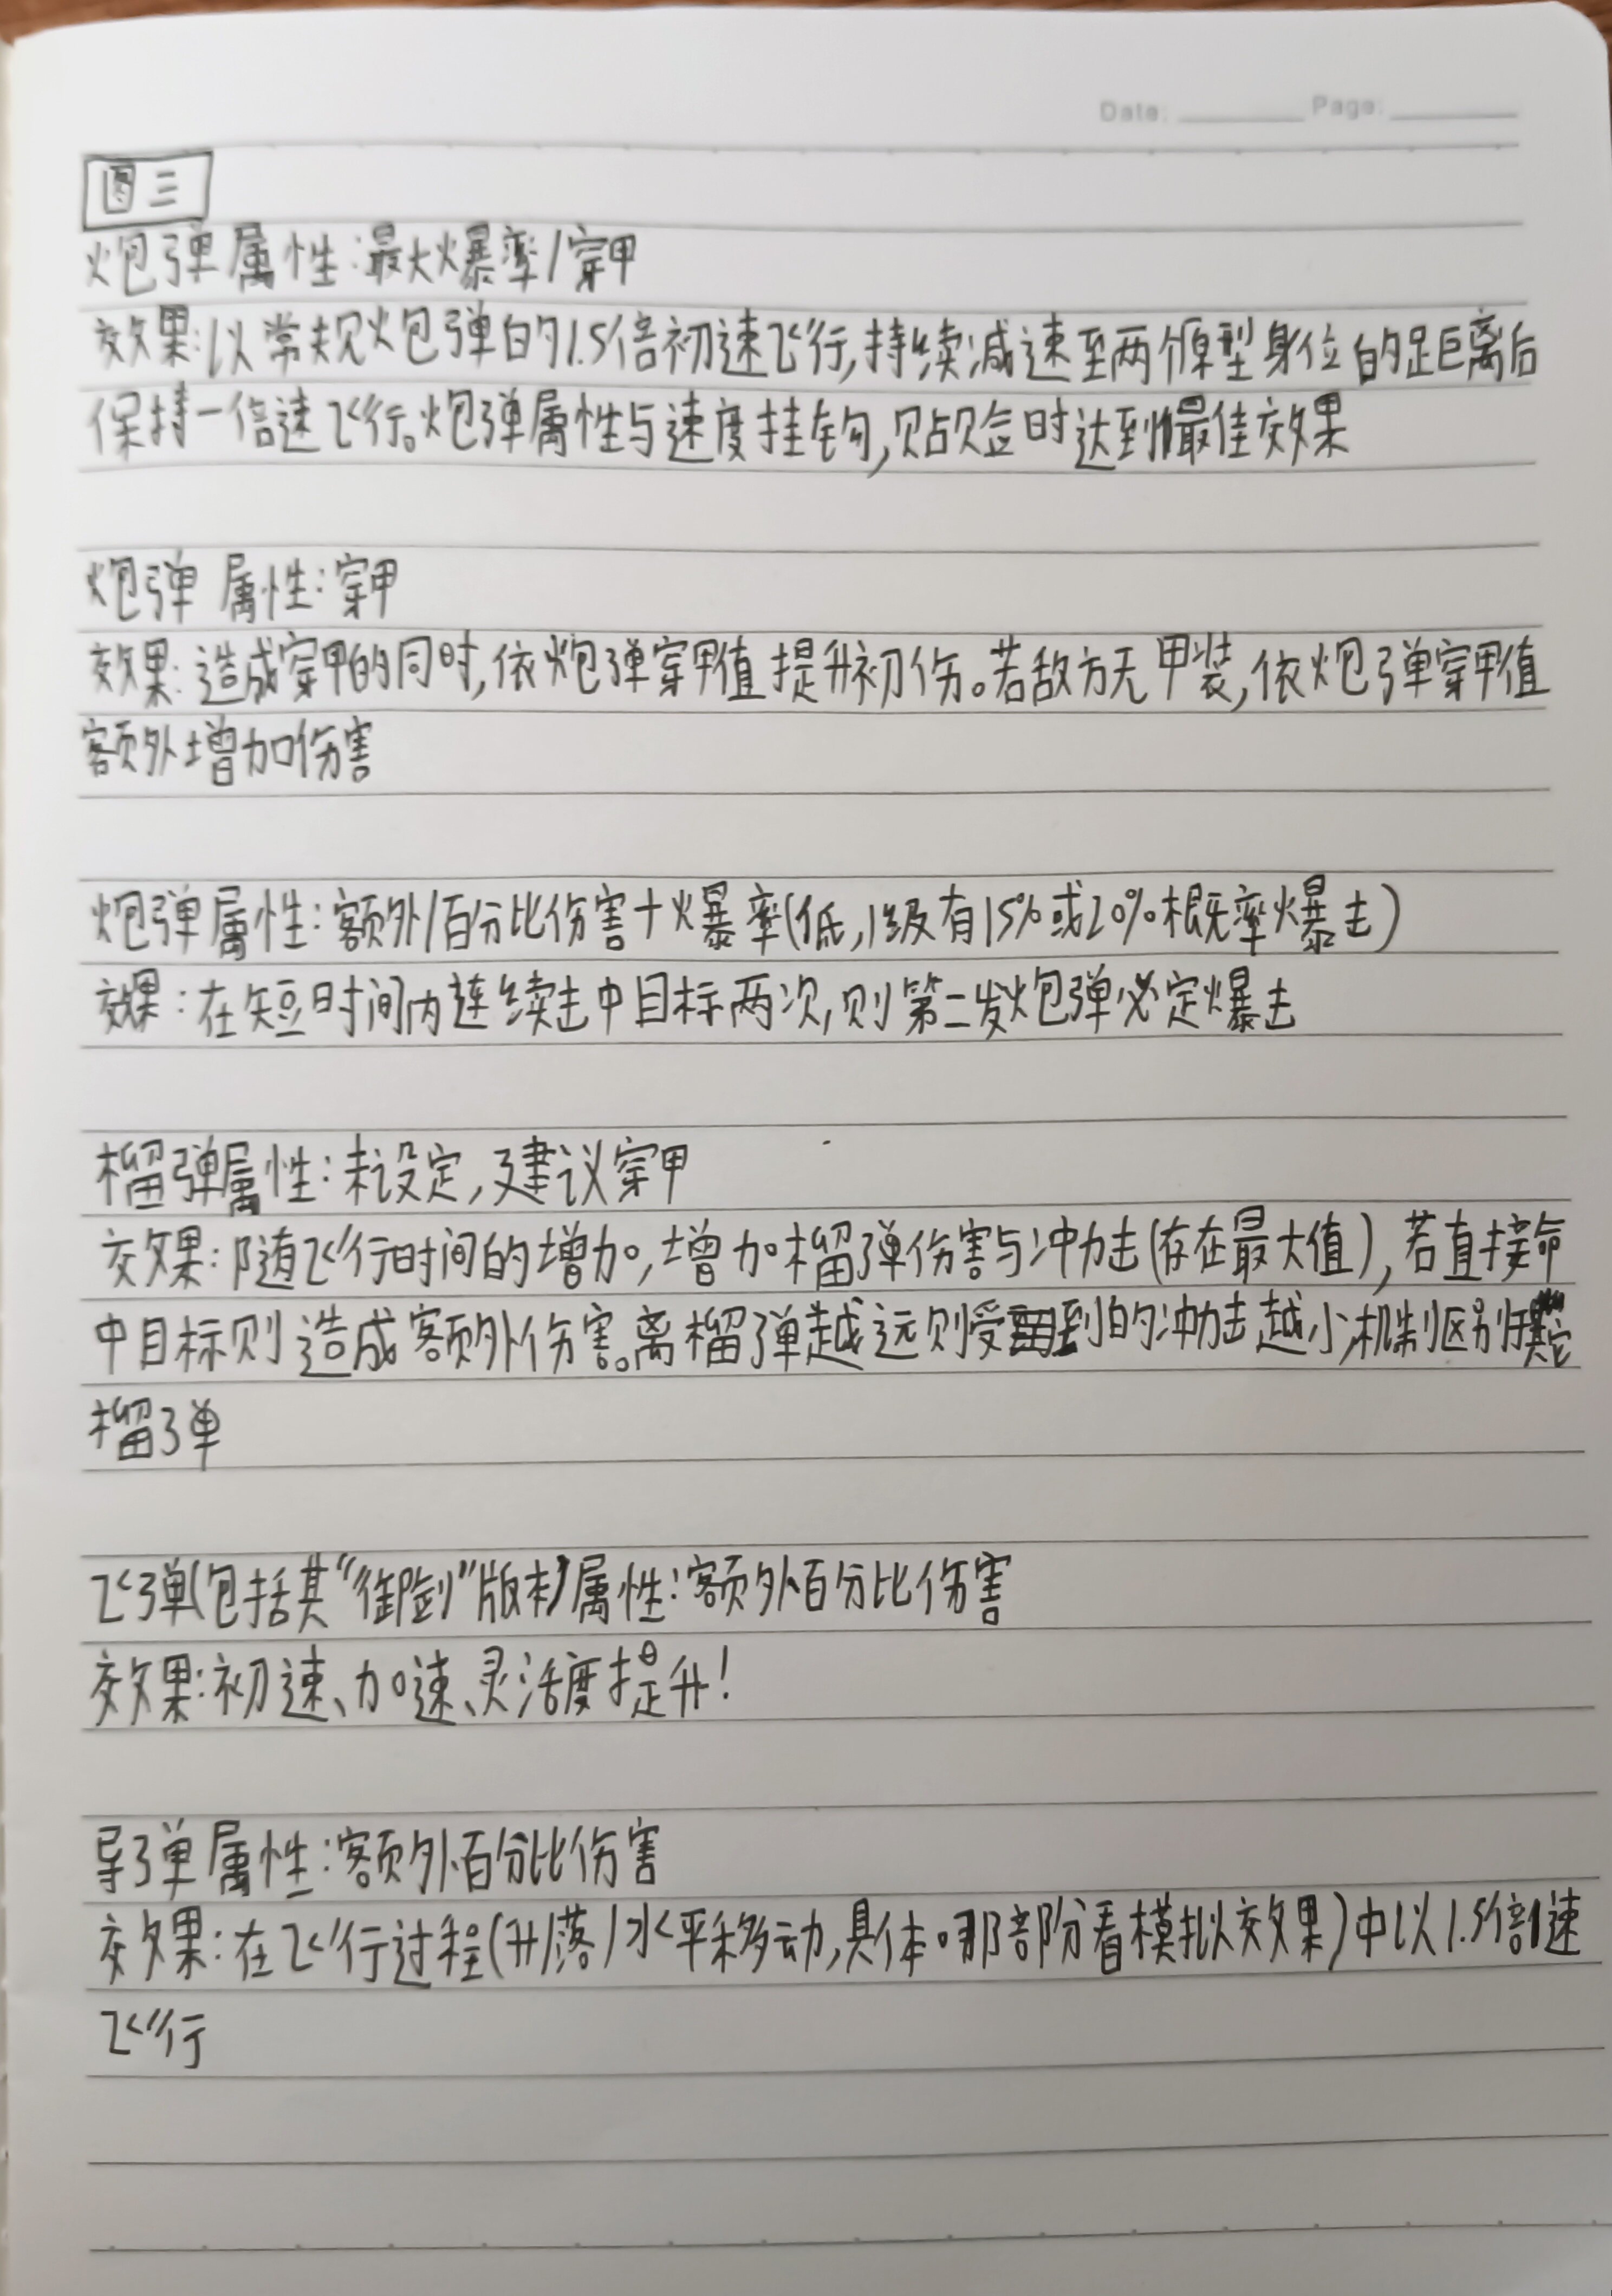 Date: Page:
图三
炮弹属性:最大爆率/穿甲
效果:以常规炮弹的1.5倍初速飞行,持续减速至两个原型身位的距离后
保持一倍速飞行。炮弹属性与速度挂钩,贴脸时达到最佳效果
炮弹属性:穿甲
效果:造成穿甲的同时,依炮弹穿甲值提升初伤。若敌方无甲装,依炮弹穿甲值
额外增加伤害
炮弹属性:额外百分比伤害+爆率(低,1级有15%或20%概率爆击)
效果:在短时间内连续击中目标两次,则第二发炮弹必定爆击
榴弹属性:未设定,建议穿甲
效果:随飞行时间的增加,增加榴弹伤害与冲力击(存在最大值),若直接命
中目标则造成额外伤害。离榴弹越远则受到的冲击越小,机制区别于其它
榴弹
飞弹(包括其“御剑”版本)属性:额外百分比伤害
效果:初速、加速、灵活度提升!
导弹属性:额外百分比伤害
效果:在飞行过程(升/落/水平移动,具体哪部份看模拟效果)中以1.5倍速
飞行